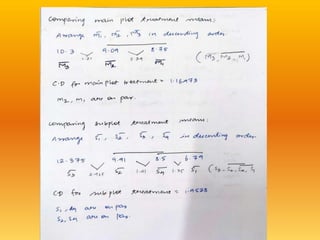 Comparing main plot treatment means:
Arrange M̄1, M̄2, M̄3 in descending order.
10.3 9.09 8.75
1.21
M̄3 M̄2 M̄1 (M3, M2, M1)
CD for main plot treatment = 1.16473
M2, M1 are on par.
Comparing subplot treatment means:
Arrange S̄1, S̄2, S̄3, S̄4 in descending order.
12.375 9.91 8.5 6.79
1.41
S̄3 S̄2 S̄4 S̄1
CD for subplot treatment = 1.9528
S2, S4 are on par.